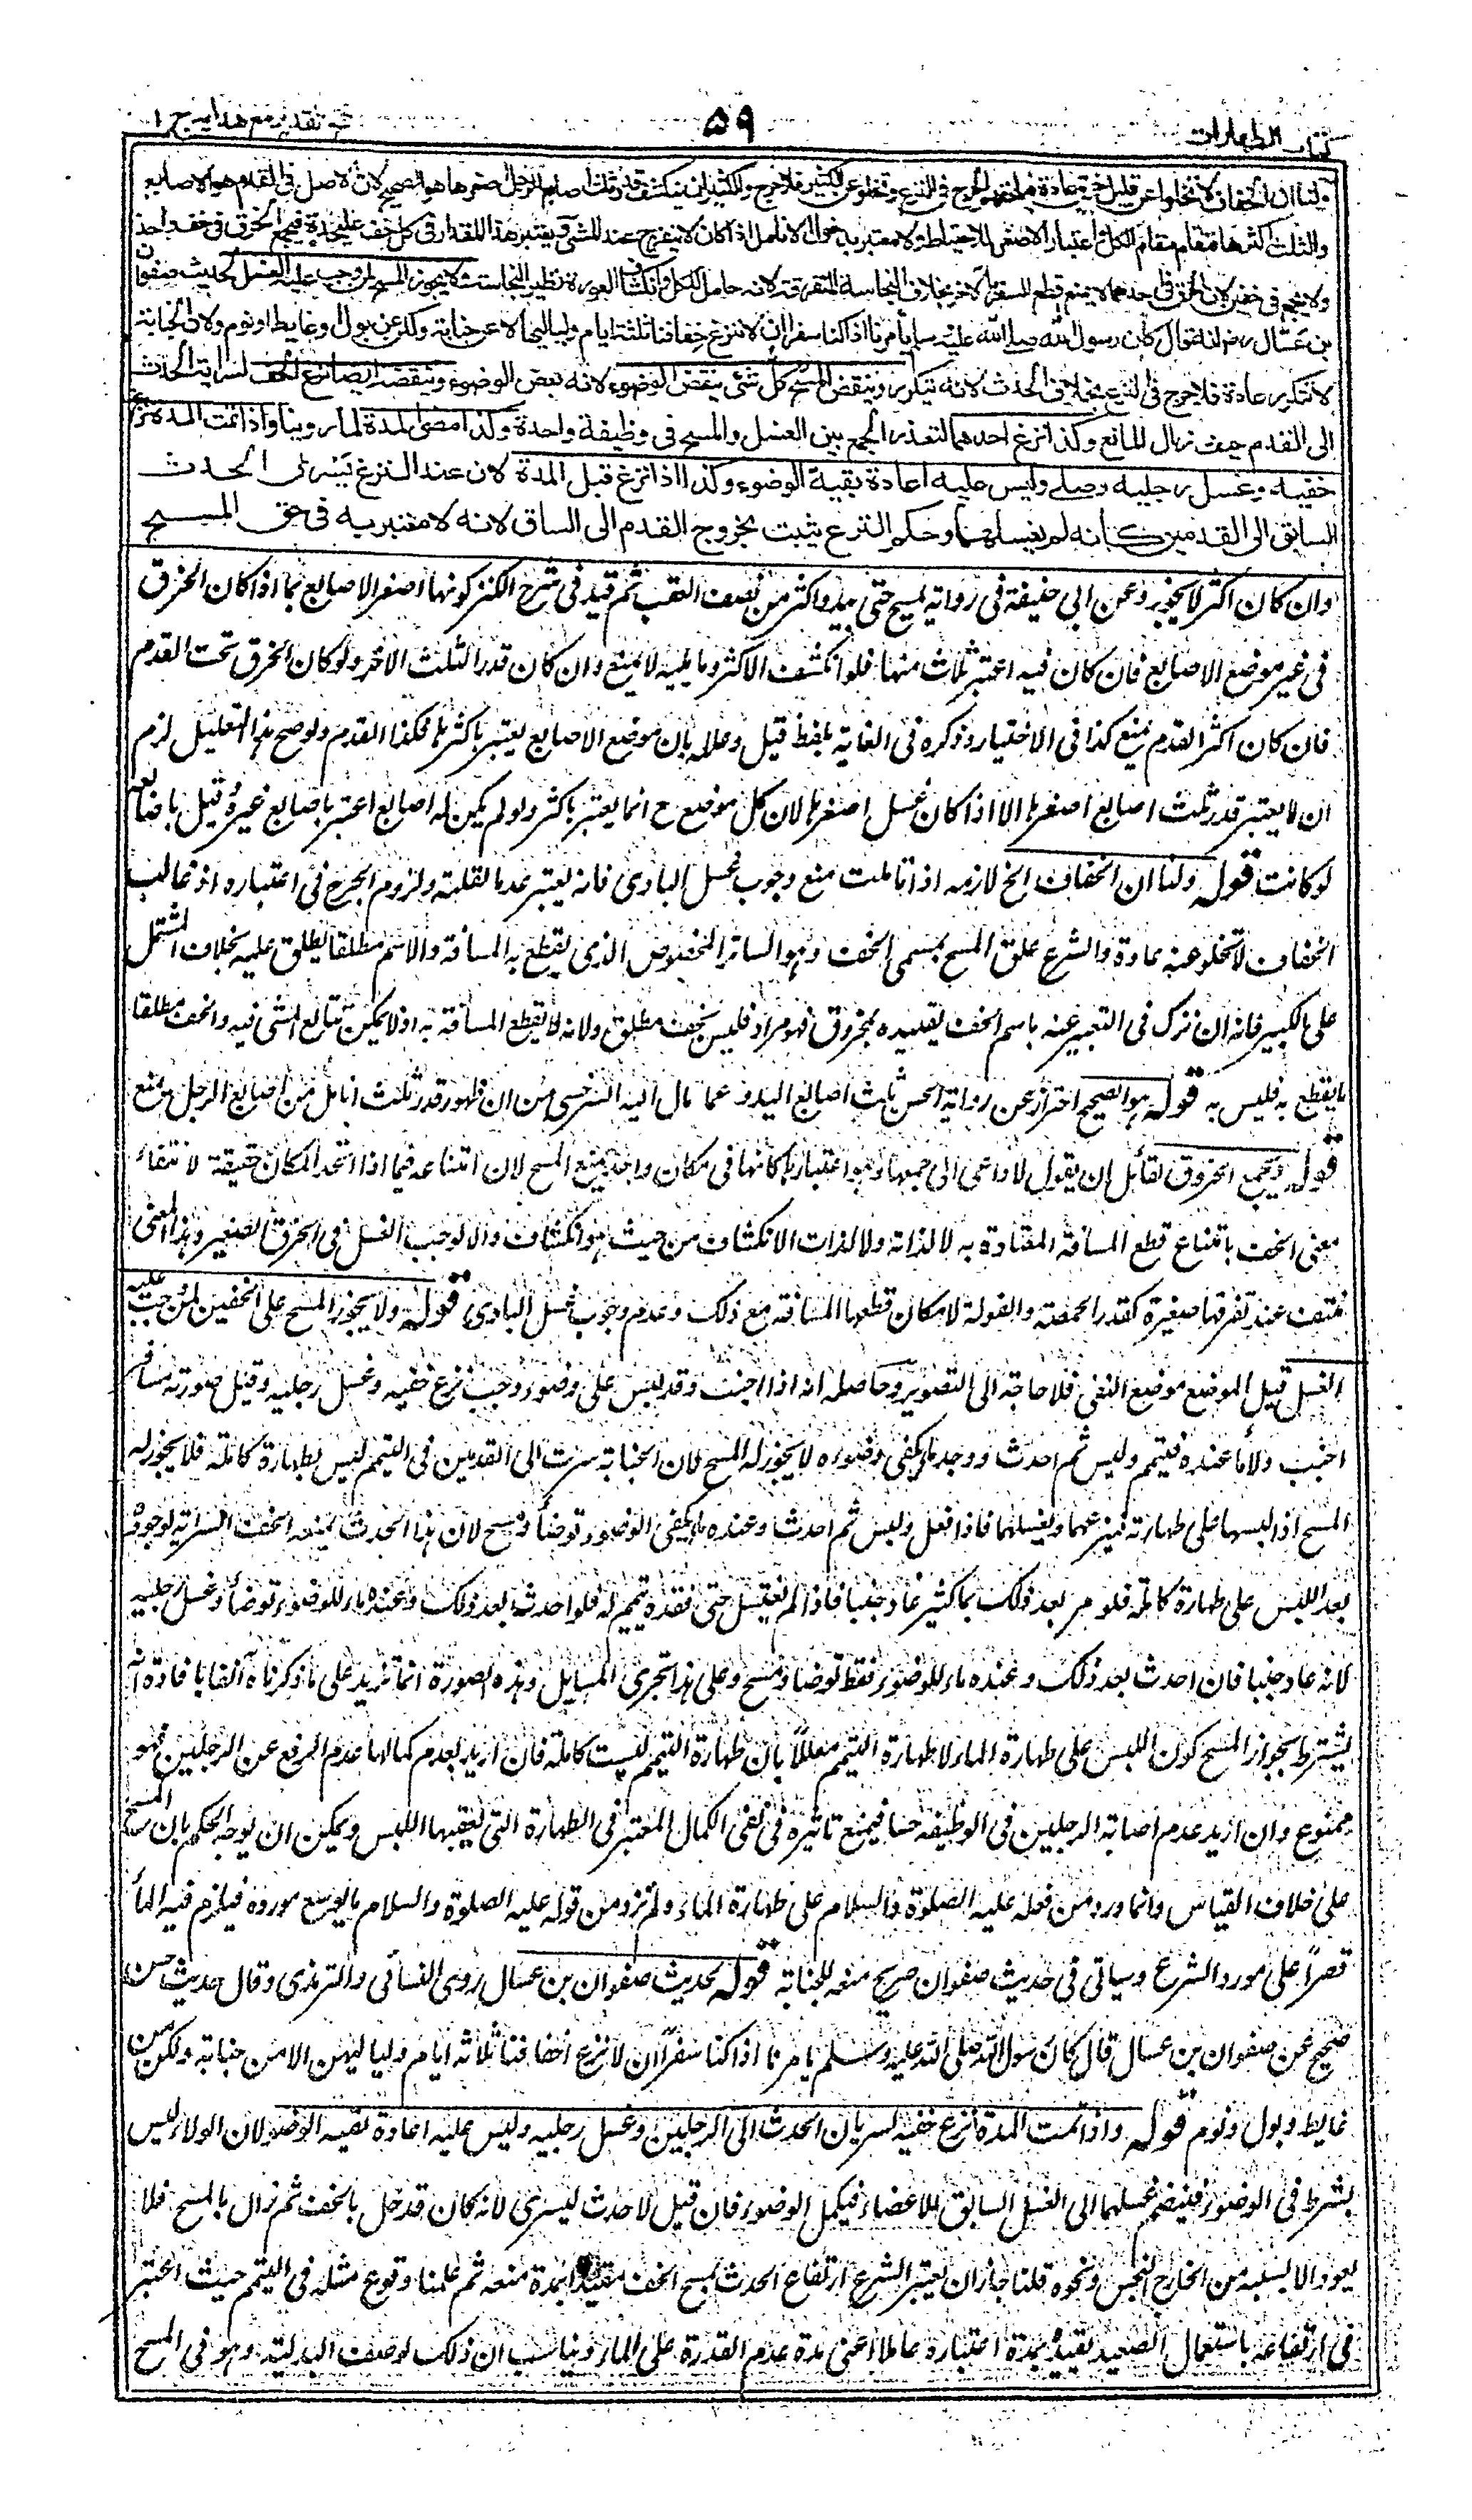 كتاب الطهارات
٥٩
فتح القدير مع هدايه ج ١
ولنا ان الخفاف لا تخلو عن قليل خرق عادة فيلحقهم الحرج فى النزع وتخلو عن الكثير فلا حرج والكثير ان ينكشف قدر ثلث اصابع الرجل اصغرها هو الصحيح لان الاصل فى القدم هو الاصابع
والثلث اكثرها فتقام مقام الكل واعتبار الاصغر للاحتياط ولا معتبر بدخول الانامل اذا كان لا ينفرج عند المشى ويعتبر هذا المقدار فى كل خف على حدة فيجمع الخرق فى خف واحد
ولا يجمع فى خفين لان الخرق فى احدهما لا يمنع قطع السفر بالاخر بخلاف النجاسة المتفرقة لانه حامل للكل وانكشاف العورة نظير النجاسة ولا يجوز المسح لمن وجب عليه الغسل لحديث صفوان
بن عسّال رض انه قال كان رسول الله صلى الله عليه وسلم يأمرنا اذا كنا سفرا ان لا ننزع خفافنا ثلثة ايام ولياليها الا عن جنابة ولكن عن بول او غايط او نوم ولان الجنابة
لا تتكرر عادة فلا حرج فى النزع بخلاف الحدث لانه يتكرر وينقض المسح كل شئ ينقض الوضوء لانه بعض الوضوء وينقضه ايضا نزع الخف لسراية الحدث
الى القدم حيث زال المانع وكذا نزع احدهما لتعذر الجمع بين الغسل والمسح فى وظيفة واحدة وكذا مضى المدة لما روينا واذا تمت المدة نزع
خفيه وغسل رجليه وصلى وليس عليه اعادة بقية الوضوء وكذا اذا نزع قبل المدة لان عند النزع يسرى الحدث
السابق الى القدمين كانه لم يغسلهما وحكم النزع يثبت بخروج القدم الى الساق لانه لا معتبر به فى حق المسح
وان كان اكثر لا يجوز وعن ابى حنيفة فى رواية يمسح حتى يبدو اكثر من نصف العقب ثم قيد فى شرح الكنز كونها اصغر الاصابع بما اذا كان الخرق
فى غير موضع الاصابع فان كان فيه اعتبر ثلاث منها فلو انكشف الاكثر وما يليه لا يمنع وان كان قدر الثلث الاخر ولو كان الخرق تحت القدم
فان كان اكثر القدم منع كذا فى الاختيار وذكره فى الغاية بلفظ قيل وعلله بان موضع الاصابع يعتبر باكثرها فكذا القدم ولو صح هذا التعليل لزم
ان لا يعتبر قدر ثلث اصابع اصغرها الا اذا كان عند اصغرها لان كل موضع ح انما يعتبر باكثره ولو لم يكن له اصابع اعتبر باصابع غيره وقيل باصابعه
لو كانت قوله ولنا ان الخفاف الخ لازمه اذا تاملت منع وجوب غسل البادى فانه يعتبر عدما لقلته ولزوم الحرج فى اعتباره اذ غالب
الخفاف لا تخلو عنه عادة والشرع علق المسح بمسمى الخف وهو الساتر المخصوص الذى يقطع به المسافة والاسم مطلقا يطلق عليه بخلاف المشتمل
على الكبير فانه ان ترك فى التعبير عنه باسم الخف تقييده بمخروق فهو مراد فليس بخف مطلق ولانه لا يقطع المسافة به اذ لا يمكن تتابع المشى فيه والخف مطلقا
ما يقطع به فليس به قوله هو الصحيح احتراز عن رواية الحسن ثلث اصابع اليد وعما مال اليه السرخسى من ان ظهور قدر ثلث انامل من اصابع الرجل يمنع
قوله ويجمع الخروق لقائل ان يقول لا داعى الى جمعها وهو اعتبارها كانها فى مكان واحد لمنع المسح لان امتناعه فيما اذا اتحد المكان حقيقة لانتفاء
معنى الخف بامتناع قطع المسافة المعتادة به لا لذاته ولا لذات الانكشاف من حيث هو انكشاف والا لوجب الغسل فى الخرق الصغير وهذا المعنى
منتف عند تفرقها صغيرة كقدر الحمصة والفولة لامكان قطعها المسافة مع ذلك وعدم وجوب غسل البادى قوله ولا يجوز المسح على الخفين لمن وجب عليه
الغسل قيل الموضع موضع النفى فلا حاجة الى التصوير وحاصله انه اذا اجنب وقد لبس على وضوء وجب نزع خفيه وغسل رجليه وقيل صورته مسافر
اجنب ولا ماء عنده فتيمم ولبس ثم احدث ووجد ما يكفى وضوءه لا يجوز له المسح لان الجنابة سرت الى القدمين فى التيمم ليس بطهارة كاملة فلا يجوز له
المسح اذا لبسها على طهارته فينزعهما ويغسلهما فاذا فعل ولبس ثم احدث وعنده ما يكفى الوضوء توضأ ومسح لان هذا الحدث يمنعه الخف السراية لوجوده
بعد اللبس على طهارة كاملة فلو مر بعد ذلك بماء كثير عاد جنبا فاذا لم يغتسل حتى فقده تيمم له فلو احدث بعد ذلك وعنده ماء للوضوء توضأ وغسل رجليه
لانه عاد جنبا فان احدث بعد ذلك وعنده ماء للوضوء فقط توضأ ومسح وعلى هذا تجرى المسايل وهذه الصورة انما تزيد على ما ذكرناه آنفا بافادة انه
يشترط لجواز المسح كون اللبس على طهارة الماء لا طهارة التيمم معللا بان طهارة التيمم ليست كاملة فان اريد بعدم كمالها عدم الرفع عن الرجلين فهو
ممنوع وان اريد عدم اصابة الرجلين فى الوظيفة حسا فيمنع تاثيره فى نفى الكمال المعتبر فى الطهارة التى يعقبها اللبس ويمكن ان يوجه الحكم بان المسح
على خلاف القياس وانما ورد من فعله عليه الصلوة والسلام على طهارة الماء ولم يرد من قوله عليه الصلوة والسلام ما يوسع مورده فيلزم فيه الماء
قصرا على مورد الشرع وسياتى فى حديث صفوان صريح منعه للجنابة قوله لحديث صفوان بن عسال روى النسائى والترمذى وقال حديث حسن
صحيح عن صفوان بن عسال قال كان رسول الله صلى الله عليه وسلم يامرنا اذا كنا سفرا ان لا ننزع خفافنا ثلاثة ايام ولياليهن الا من جنابة ولكن من
غايط وبول ونوم قوله واذا تمت المدة نزع خفيه لسريان الحدث الى الرجلين وغسل رجليه وليس عليه اعادة بقية الوضوء لان الولاء ليس
بشرط فى الوضوء فينضم غسلهما الى الغسل السابق للاعضاء فيكمل الوضوء فان قيل لا حدث ليسرى لانه كان قد حل بالخف ثم زال بالمسح فلا
يعود الا بسببه من الخارج النجس ونحوه قلنا جاز ان يعتبر الشرع ارتفاع الحدث بمسح الخف مقيدا بمدة منعه ثم علمنا وقوع مثله فى التيمم حيث اعتبر
فى ارتفاعه باستعمال الصعيد تقييده بمدة اعتباره عاملا اعنى مدة عدم القدرة على الماء ويناسب ان ذلك لوصف البدلية وهو فى المسح